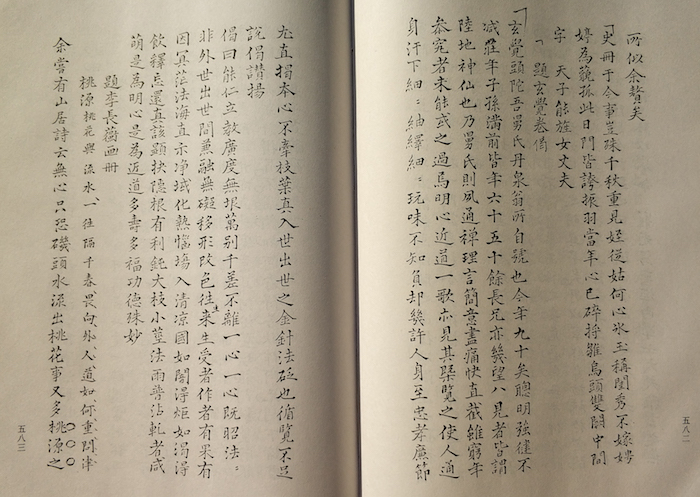 所似余贅矣
史冊于今事豈殊千秋重見姪從姑何心氷玉稱閨秀不嫁娉
婷為藐孤此日門皆誇振羽當年心已碎將雛烏頭雙闕中間
字天子能旌女丈夫
題玄覺卷偈
玄覺頭陀吾舅氏丹泉翁所自號也今年九十矣聰明強健不
減莊年子孫滿前皆年六十五十餘長兄亦幾望八見者皆謂
陸地神仙也乃舅氏則夙通禪理言簡意盡痛快直截雖窮年
叅究者未能或之過焉明心近道一歌亦見其槩覽之使人通
身汗下細細紬繹細細玩味不知負却幾許人身至忠孝廉節
五八二
尤直揭本心不牽枝葉真入世出世之金針法砭也循覽不足
說偈讃揚
偈曰能仁立教廣度無垠萬别千差不離一心一心既昭法法
非外世出世間兼融無礙移形改色往來生受者作者有果有
因冥茫法海直示净域化熱惱塲入清凉國如闇得炬如渴得
飲釋氏還真該顯抉隱根有利鈍大枝小莖法雨普沾乾者咸
萌是為明心是為近道多壽多福功德殊妙
題李長蘅畫冊
桃源桃花與流水一往隔千春畏向外人道如何重問津
余嘗有山居詩云無心只恐磯頭水流出桃花事又多桃源之
五八三